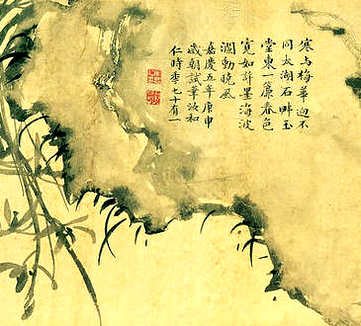 寒与梅華迥不
同太湖石畔玉
堂東一簾春色
寛如許墨海波
瀾動晚風
嘉慶五年庚申
歲朝試筆汝和
仁時季七十有一